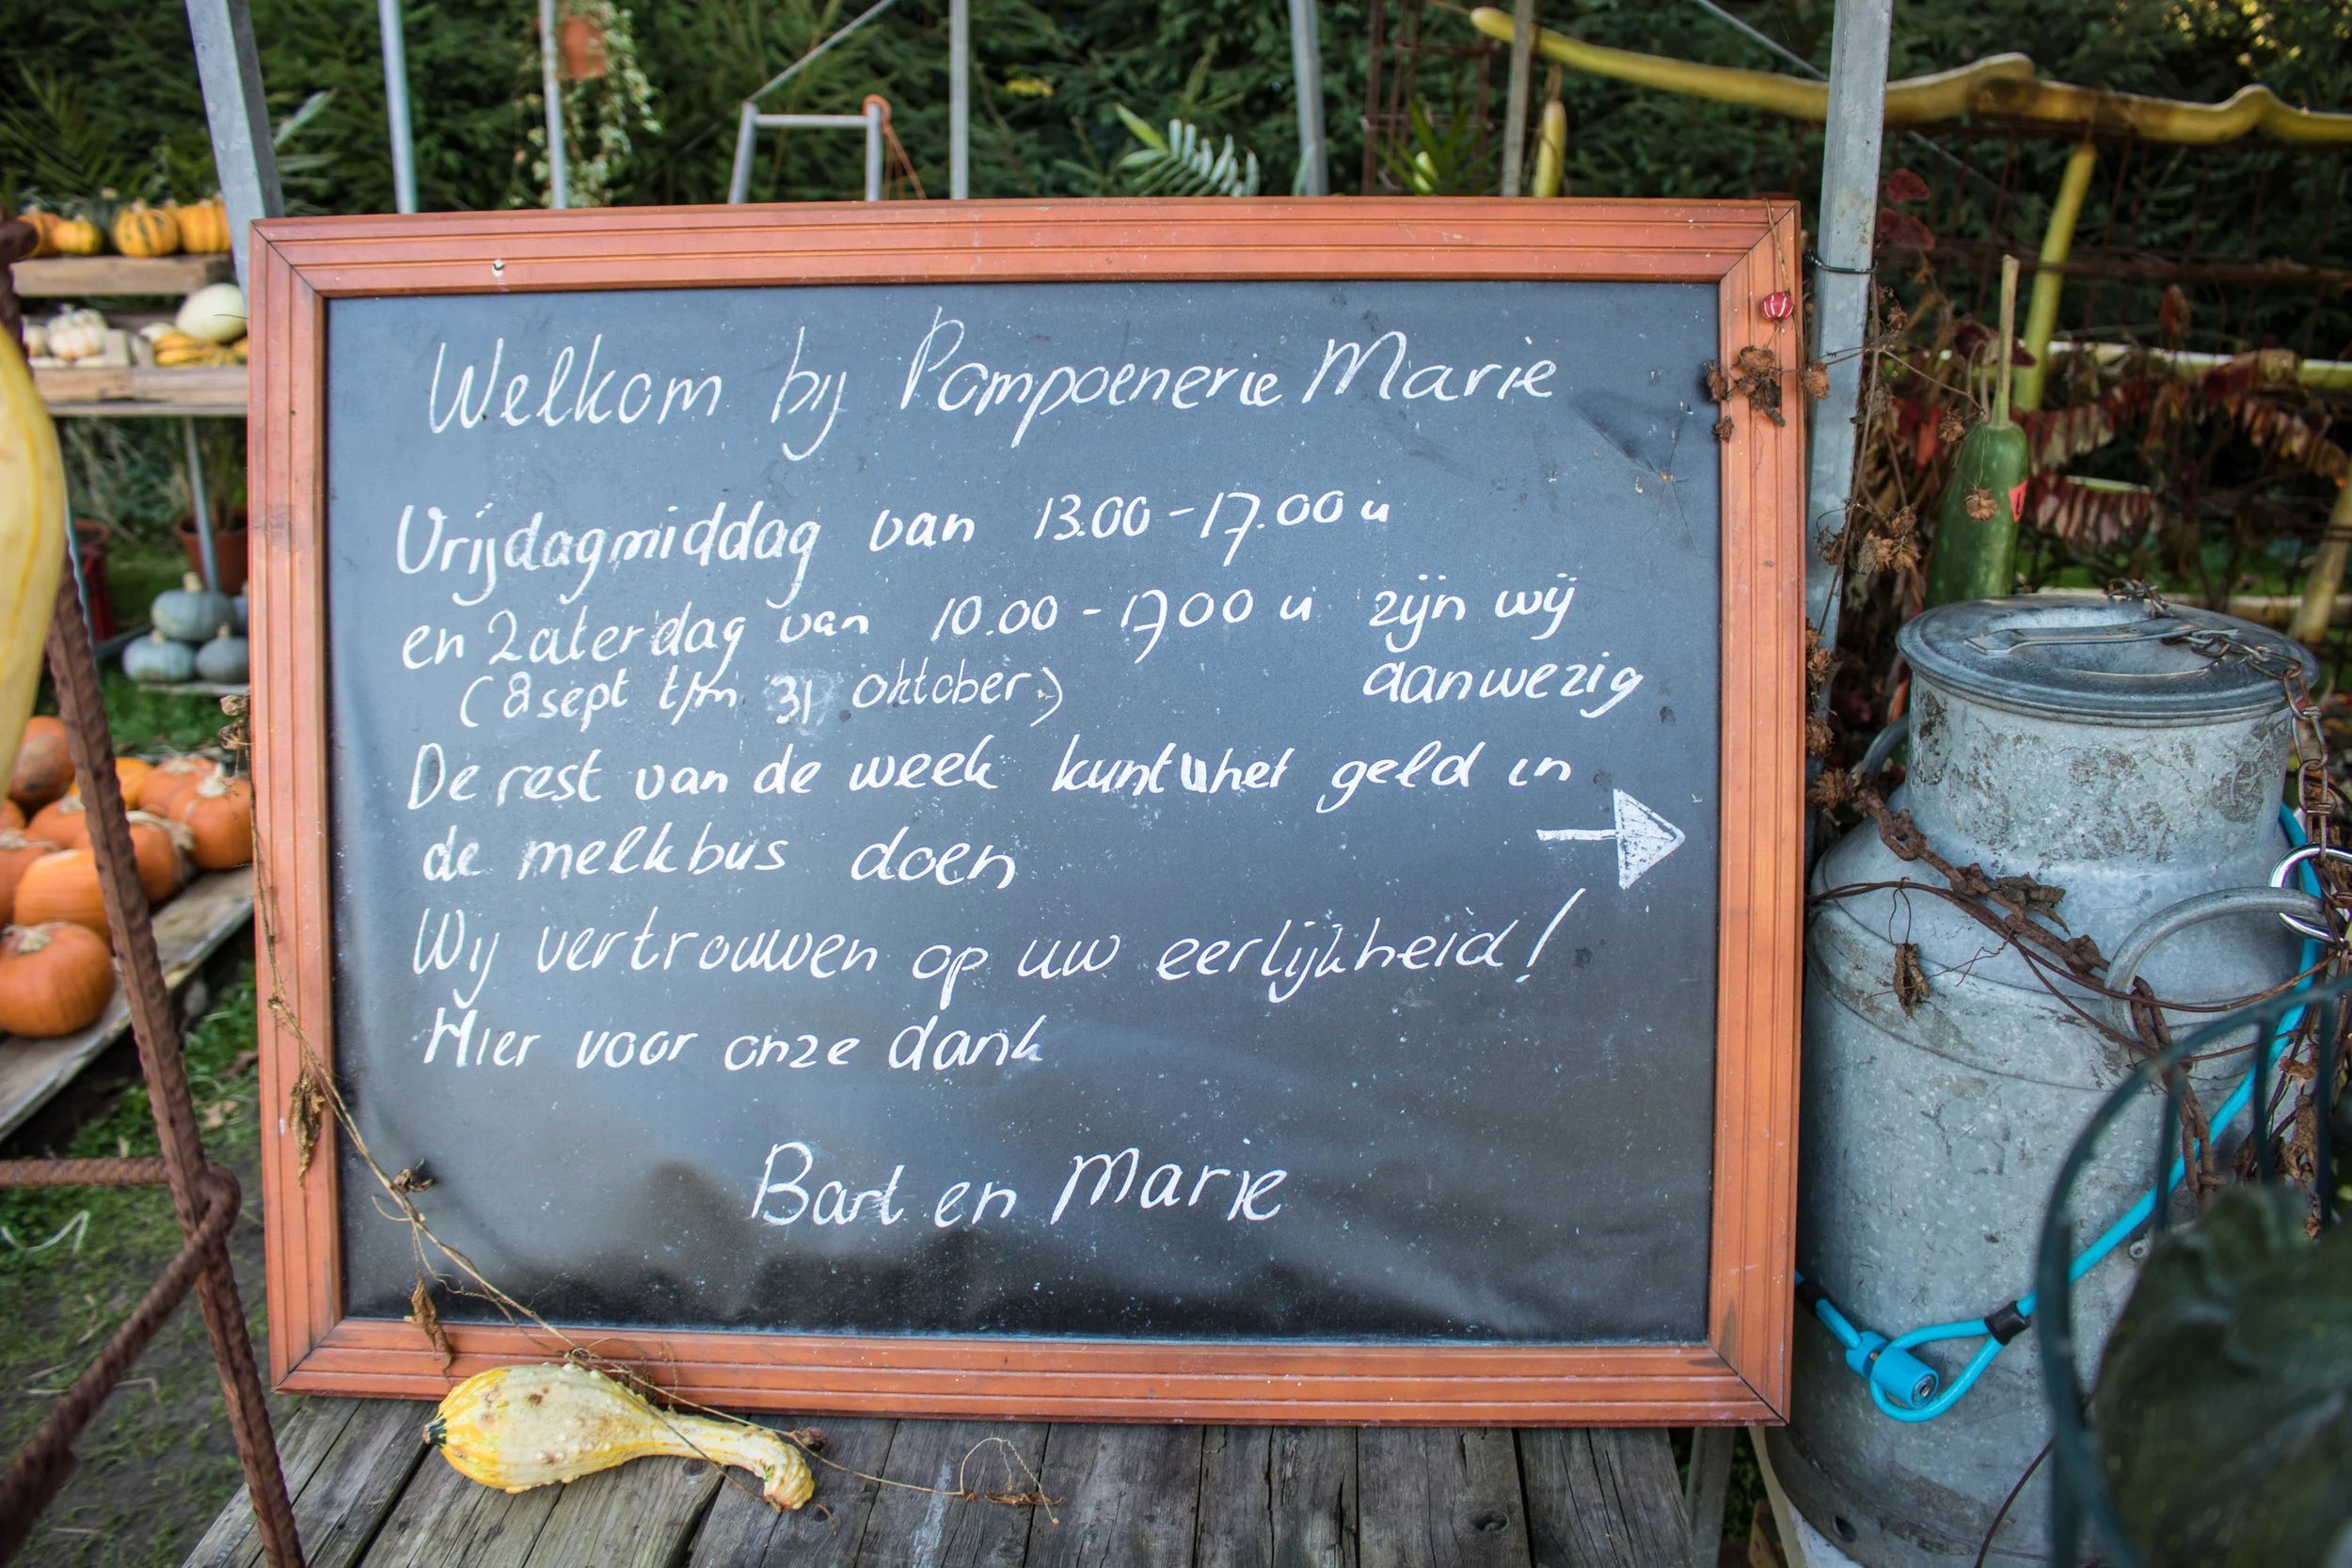 Welkom bij Pompoenerie Marie
Vrijdagmiddag van 13.00 - 17.00 u
en Zaterdag van 10.00 - 17.00 u zijn wij
(8 sept t/m 31 oktober) aanwezig
De rest van de week kunt u het geld in
de melkbus doen
Wij vertrouwen op uw eerlijkheid!
Hier voor onze dank
Bart en Marie